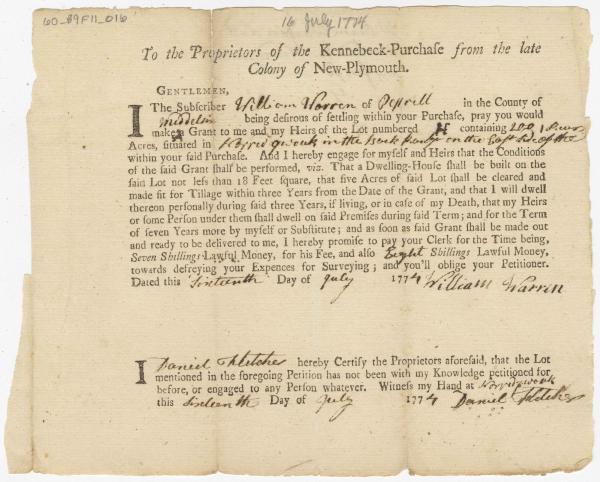 60_B9F11_016
16 July 1774
To the Proprietors of the Kennebeck-Purchaſe from the late
Colony of New-Plymouth.
GENTLEMEN,
I The Subſcriber William Warren of in the County of
being deſirous of ſettling within your Purchaſe, pray you would
make a Grant to me and my Heirs of the Lot numbered containing 200
Acres, ſituated in in the Back Range on the East Side of the
within your ſaid Purchaſe. And I hereby engage for myſelf and Heirs that the Conditions
of the ſaid Grant ſhall be performed, viz. That a Dwelling-Houſe ſhall be built on the
ſaid Lot not leſs than 18 Feet ſquare, that five Acres of ſaid Lot ſhall be cleared and
made fit for Tillage within three Years from the Date of the Grant, and that I will dwell
thereon perſonally during ſaid three Years, if living, or in caſe of my Death, that my Heirs
or ſome Perſon under them ſhall dwell on ſaid Premiſes during ſaid Term; and for the Term
of ſeven Years more by myſelf or Subſtitute; and as ſoon as ſaid Grant ſhall be made out
and ready to be delivered to me, I hereby promiſe to pay your Clerk for the Time being,
Seven Shillings Lawful Money, for his Fee, and alſo Eight Shillings Lawful Money,
towards defreying your Expences for Surveying; and you'll oblige your Petitioner.
Dated this Sixteenth Day of July 1774 William Warren
I Daniel Fletcher hereby Certify the Proprietors aforeſaid, that the Lot
mentioned in the foregoing Petition has not been with my Knowledge petitioned for
before, or engaged to any Perſon whatever. Witneſs my Hand at
this Sixteenth Day of July 1774 Daniel Fletcher